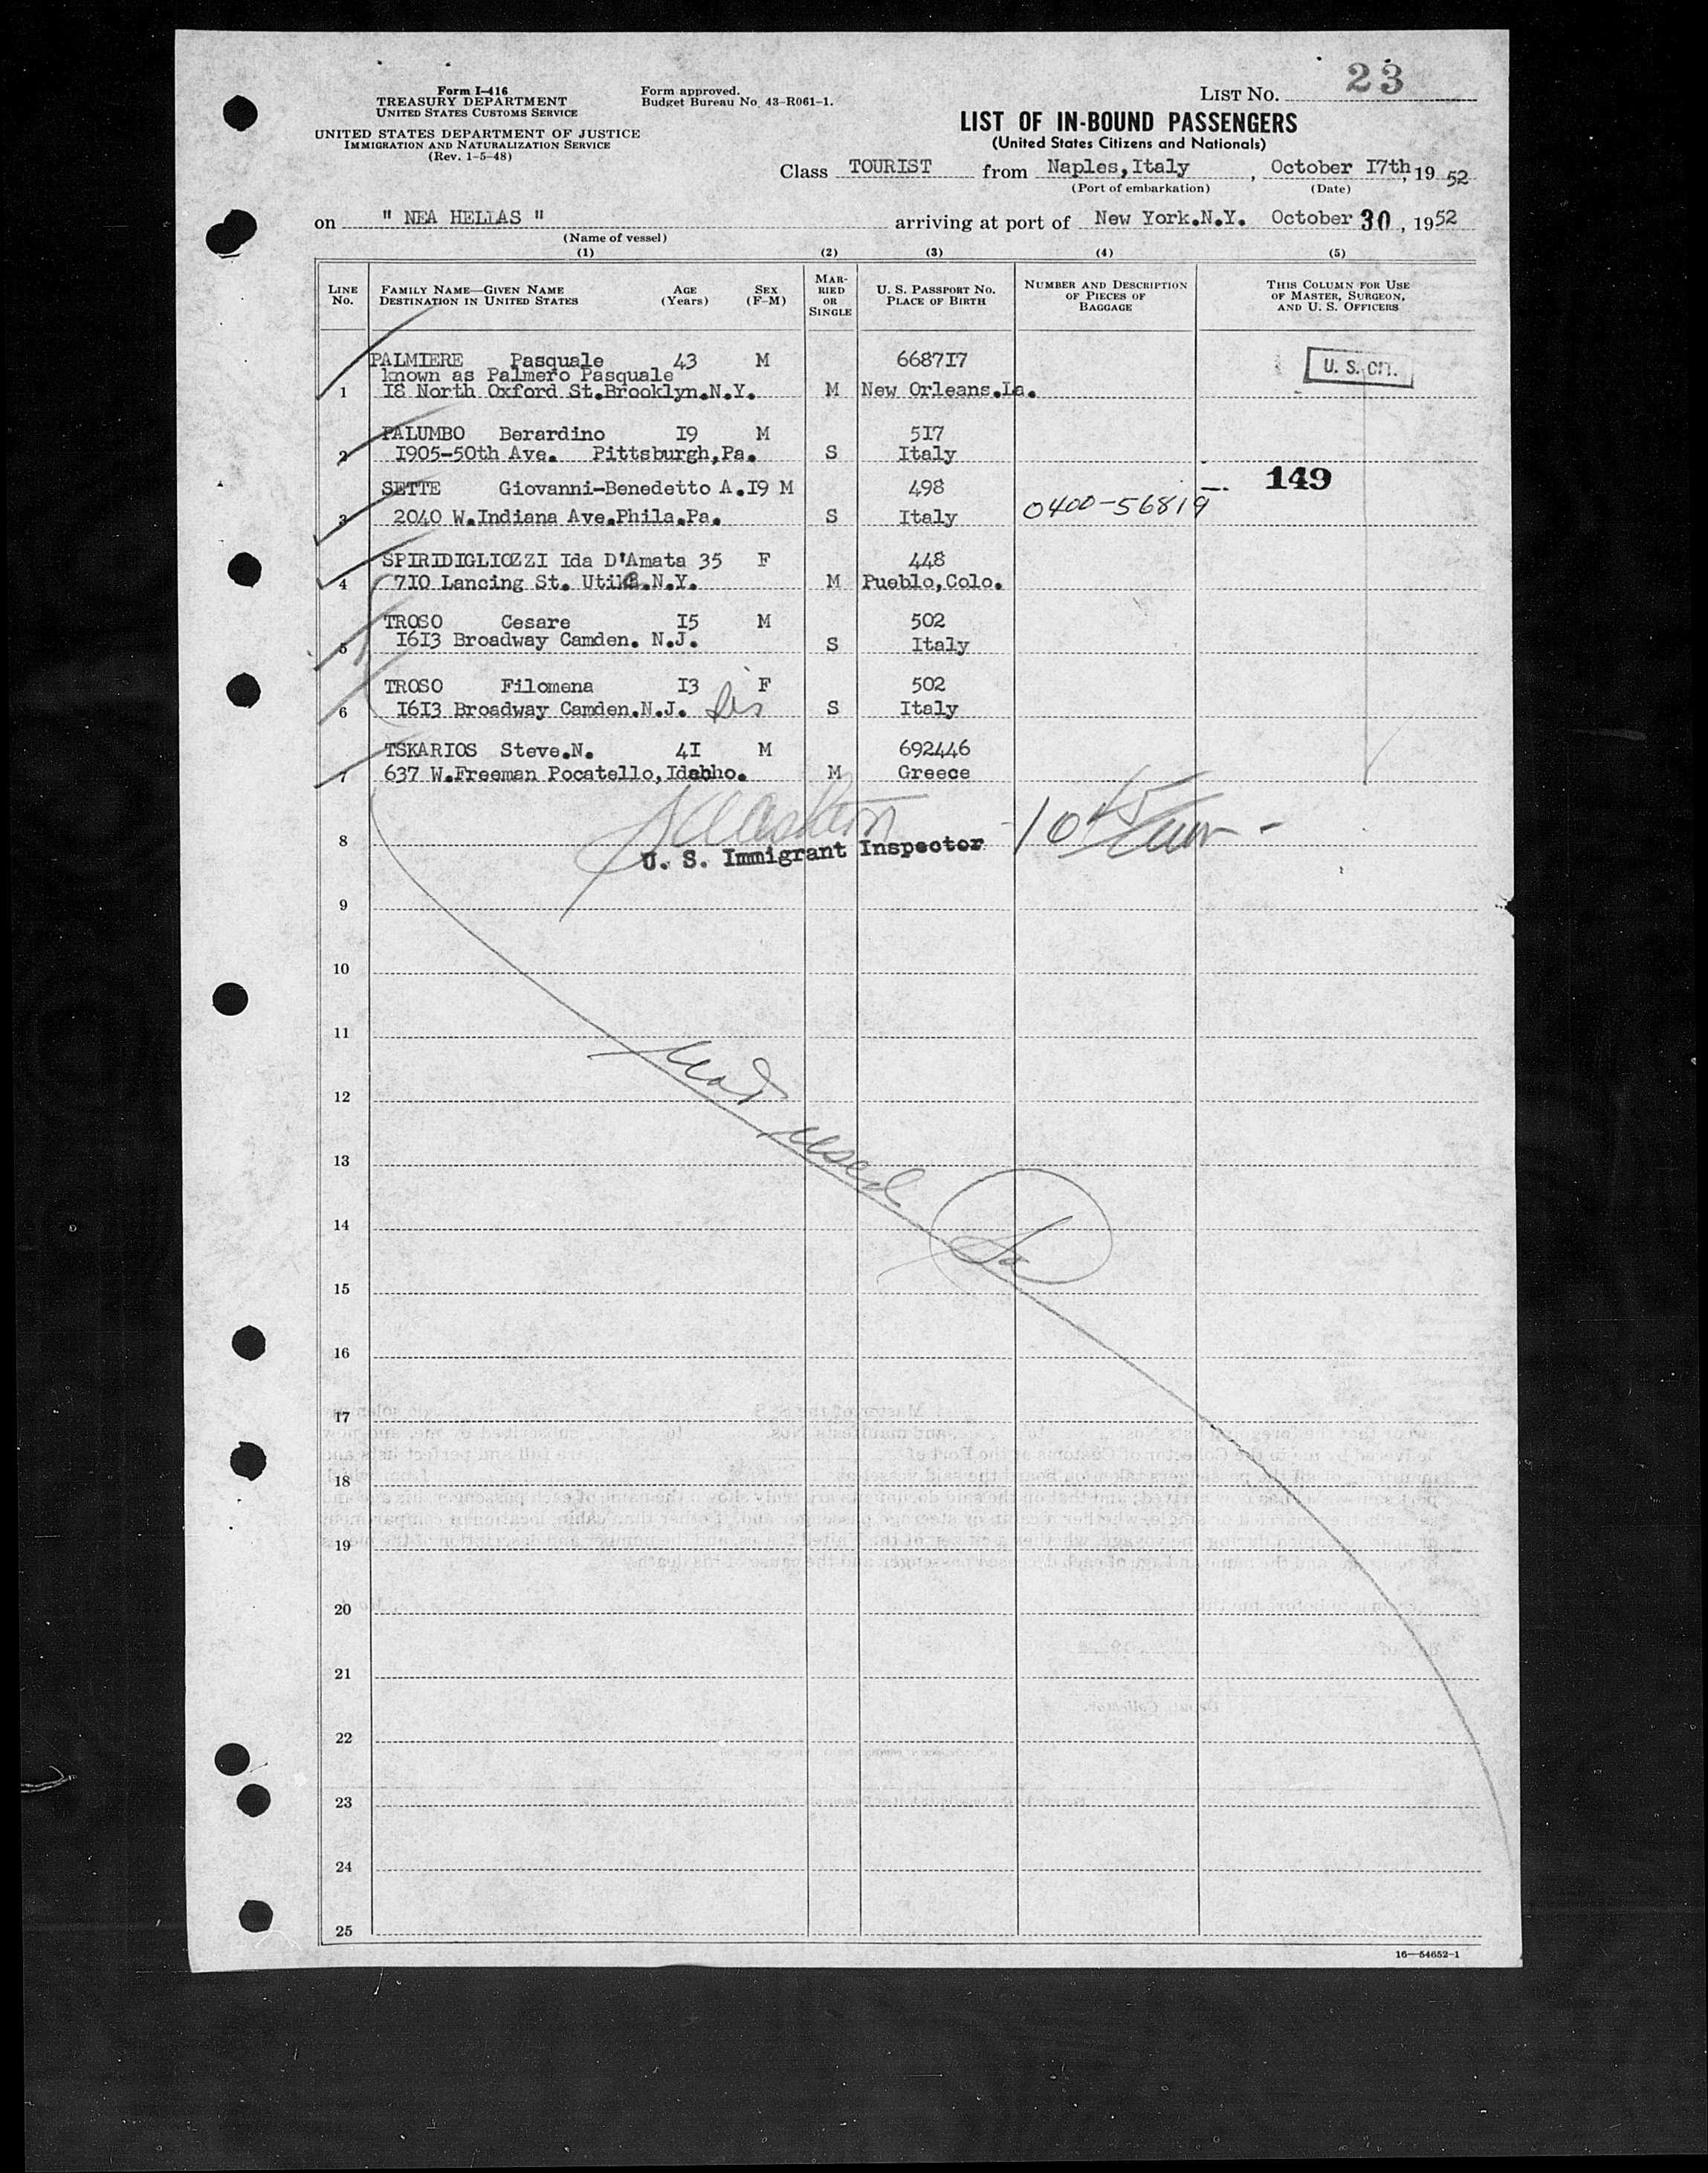 Form I-416
TREASURY DEPARTMENT
UNITED STATES CUSTOMS SERVICE
UNITED STATES DEPARTMENT OF JUSTICE
IMMIGRATION AND NATURALIZATION SERVICE
(Rev. 1-5-48)
Form approved.
Budget Bureau No. 43-R061-1.
LIST NO. 23
LIST OF IN-BOUND PASSENGERS
(United States Citizens and Nationals)
Class TOURIST from Naples,Italy , October I7th, 19 52
(Port of embarkation) (Date)
on " NEA HELLAS " arriving at port of New York.N.Y. October 30, 1952
(Name of vessel)
(1) (2) (3) (4) (5)
LINE NO. FAMILY NAME—GIVEN NAME DESTINATION IN UNITED STATES AGE (Years) SEX (F-M) MARRIED OR SINGLE U. S. PASSPORT NO. PLACE OF BIRTH NUMBER AND DESCRIPTION OF PIECES OF BAGGAGE THIS COLUMN FOR USE OF MASTER, SURGEON, AND U. S. OFFICERS
PALMIERE Pasquale 43 M 6687I7 U. S. CIT.
known as Palmero Pasquale
1 I8 North Oxford St.Brooklyn.N.Y. M New Orleans.La.
PALUMBO Berardino I9 M 5I7
2 I905-50th Ave. Pittsburgh,Pa. S Italy
SETTE Giovanni-Benedetto A.I9 M 498 149
3 2040 W.Indiana Ave.Phila.Pa. S Italy 0400-56819
SPIRIDIGLIOZZI Ida D'Amata 35 F 448
4 7I0 Lancing St. Utica.N.Y. M Pueblo,Colo.
TROSO Cesare I5 M 502
5 I6I3 Broadway Camden. N.J. S Italy
TROSO Filomena I3 F 502
6 I6I3 Broadway Camden.N.J. sis S Italy
TSKARIOS Steve.N. 4I M 692446
7 637 W.Freeman Pocatello,Idahho. M Greece
8 U. S. Immigrant Inspector 10 45
9
10
11
12 not
13 used
14
15
16
17
18
19
20
21
22
23
24
25
16—54652-1